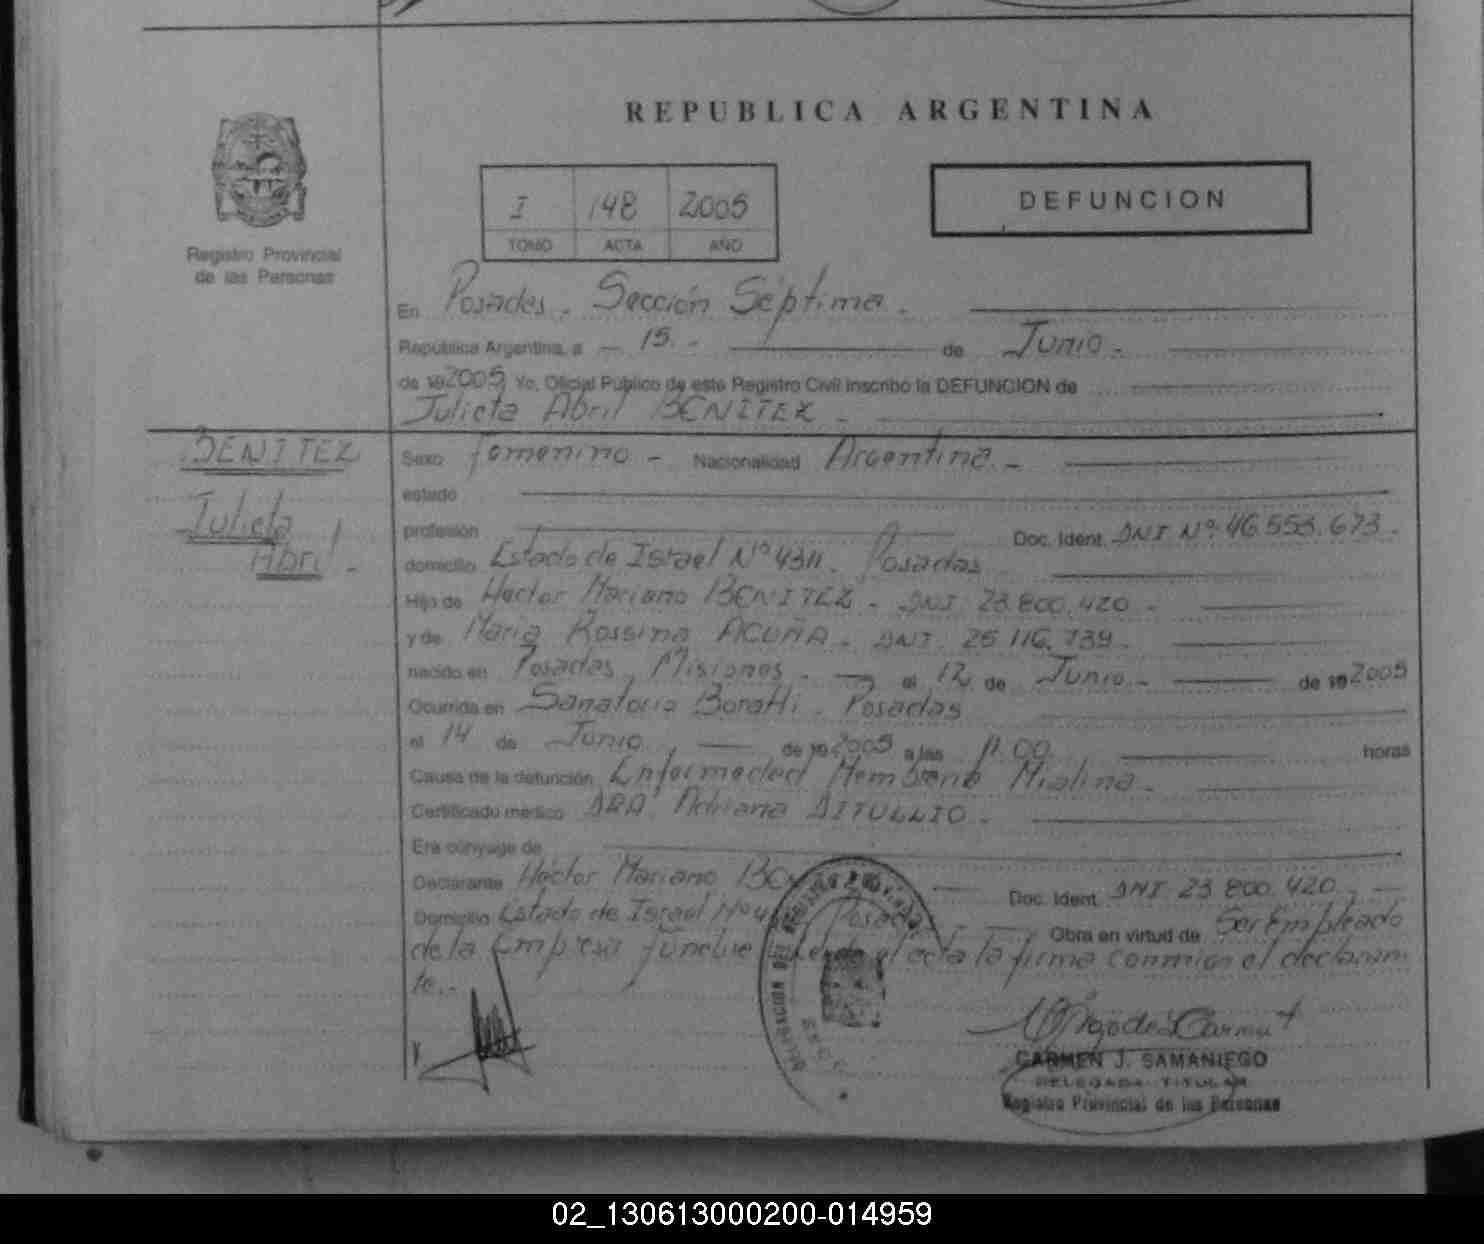 REPUBLICA ARGENTINA
I 148 2005
TOMO ACTA AÑO
DEFUNCION
Registro Provincial
de las Personas
En Posadas. Sección Séptima.
República Argentina, a - 15. - de Junio -
de 192005 Yo, Oficial Público de este Registro Civil inscribo la DEFUNCION de
Julieta Abril BENITEZ -
BENITEZ
Julieta
Abril -
Sexo femenino - Nacionalidad Argentina -
estado
profesión Doc. Ident. DNI Nº 46.553.673.
domicilio Estado de Israel Nº 4311. Posadas
Hijo de Hector Mariano BENITEZ - DNI 23.800.420 -
y de Maria Rossina ACUÑA - DNI. 25.116.739 -
nacido en Posadas, Misiones. - el 12 de Junio - de 192005
Ocurrida en Sanatorio Boratti. Posadas
el 14 de Junio, de 192005 a las 11.00 horas
Causa de la defunción Enfermedad Membrana Mialina.
Certificado médico DRA. Adriana DITULLIO -
Era cónyuge de
Declarante Hector Mariano Doc. Ident. DNI 23.800.420 -
Domicilio Estado de Israel Nº Posadas Obra en virtud de Ser Empleado
de la Empresa fúnebre el acta la firma conmigo el declaran
te.-
CARMEN J. SAMANIEGO
DELEGADA TITULAR
Registro Provincial de las Personas
02_130613000200-014959